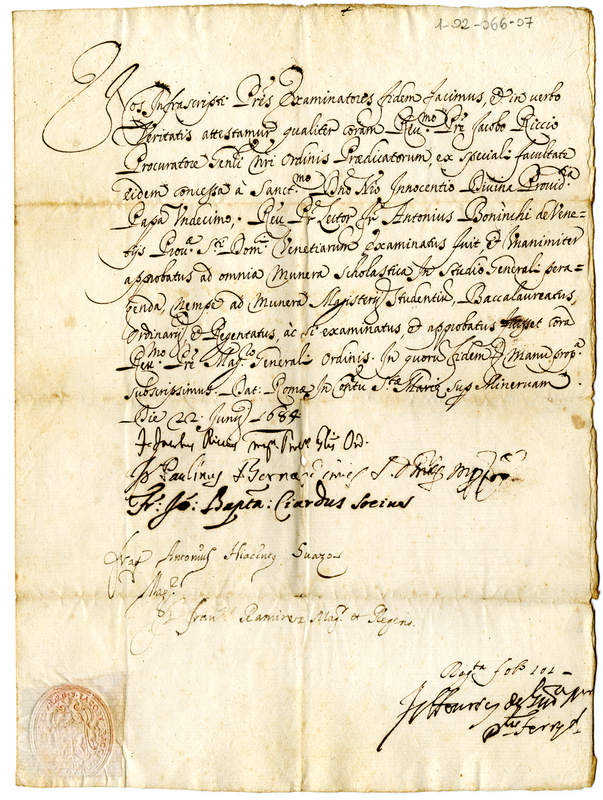 1-92-066-07
Nos Infrascripti Prẽs Examinatores fidem facimus, & in verbo
Veritatis attestamur, qualiter coram Reu.mo Pre Jacobo Riccio
Procuratore Genli Nri Ordinis Prædicatorum, ex speciali facultate
eidem concessa à Sanct.mo Dno Nro Innocentio Divina Provid.tia
Papa Undecimo, Reu. Pr. Lector Fr. Antonius Boninchi de Vene=
tijs Prou.æ S.ti Dom.ci Venetiarum examinatus fuit & Unanimiter
approbatus ad omnia Munera Scholastica In Studio Generali pera=
genda, Nempe ad Munera Magisterij Studentiũ, Baccalaureatus,
Ordinarij, & Regentatus, àc si examinatus & approbatus fuisset corã
Reu.mo Pre Mag.ro Generali Ordinis. In quorũ fidem Manu prop.a
Subscripsimus. Dat. Romæ In Contu S.tæ Mariæ Sup. Minervam.
Die 22 Junij 1684
Fr. Paulinus Bernard
Fr: Jo: Bapta: Ciardus socius
Frat Antonius Hiacint Suazo
Mag.r
Fr Fran.cus Ramirez Mag.r et Regens.
Reg.ta folo 101